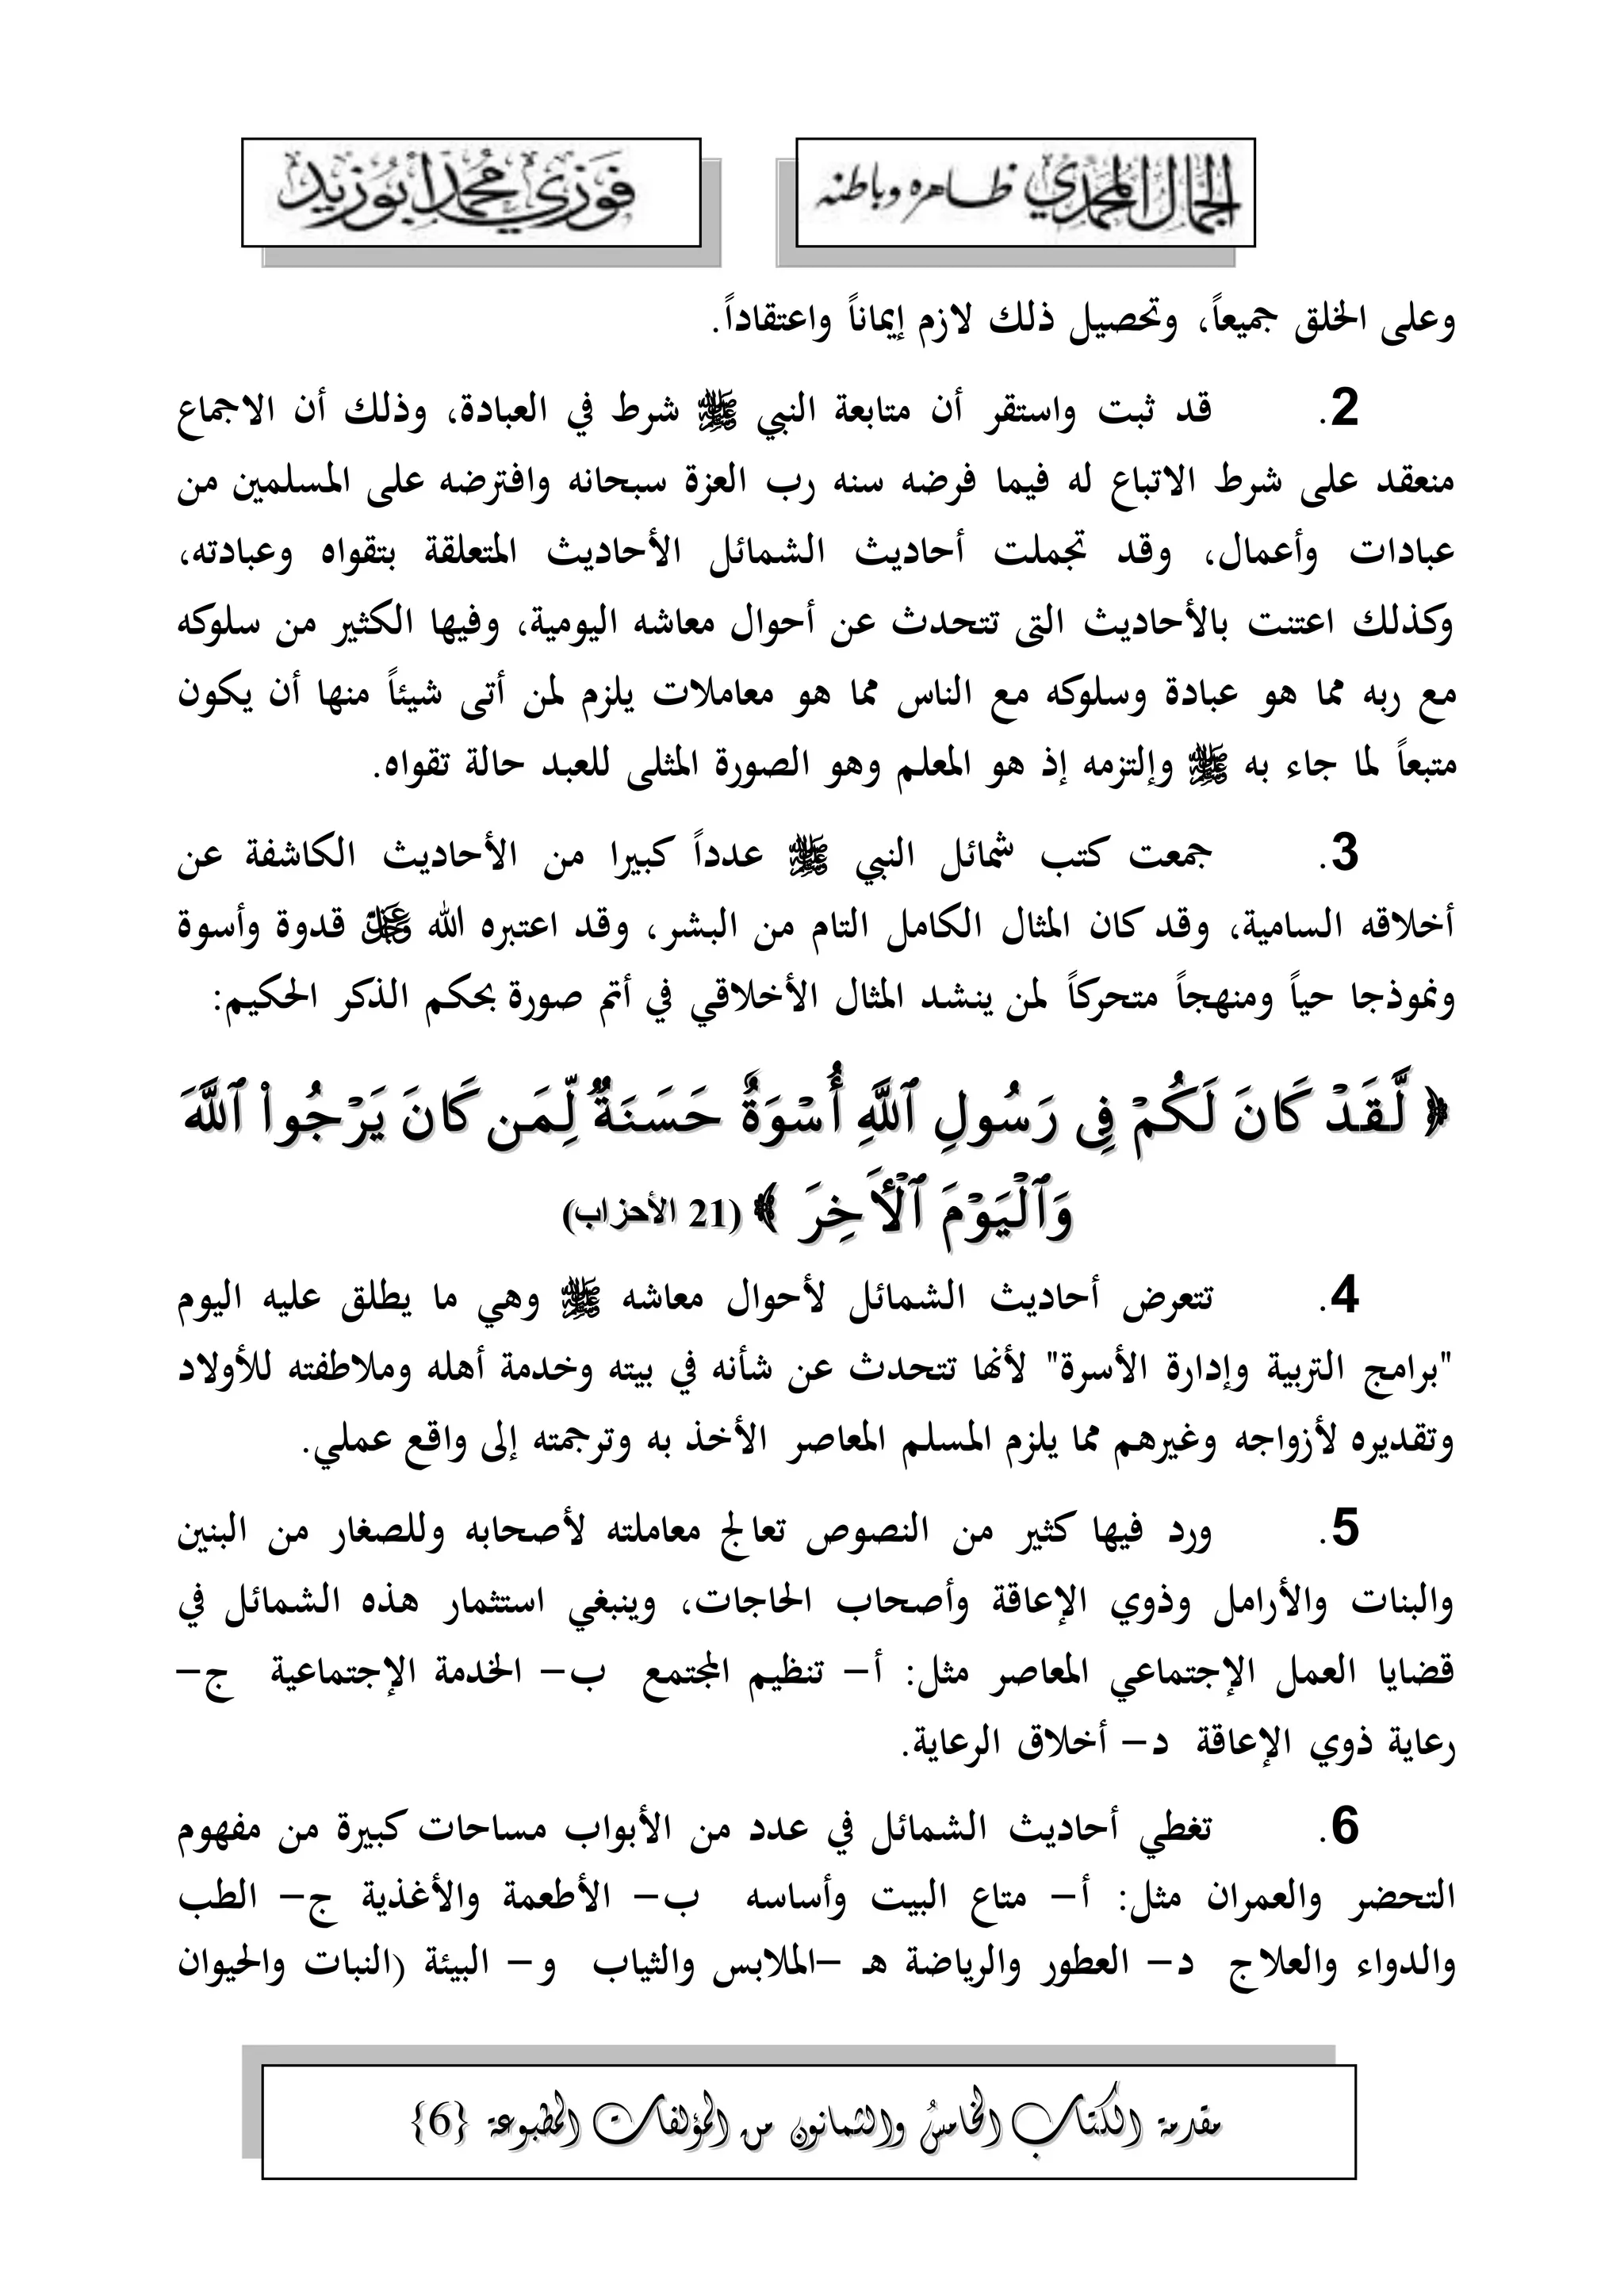 الجمال المحمدي ظاهره وباطنه
فوزي محمد أبوزيد
وعلى الخلق جميعاً، وتحصيل ذلك لازم إيماناً واعتقاداً.
2. قد ثبت واستقر أن متابعة النبي ﷺ شرط في العبادة، وذلك أن الاجماع
منعقد على شرط الاتباع له فيما فرضه سنه رب العزة سبحانه وافترضه على المسلمين من
عبادات وأعمال، وقد تجملت أحاديث الشمائل الأحاديث المتعلقة بتقواه وعبادته،
وكذلك اعتنت بالأحاديث التى تتحدث عن أحوال معاشه اليومية، وفيها الكثير من سلوكه
مع ربه مما هو عبادة وسلوكه مع الناس مما هو معاملات يلزم لمن أتى شيئاً منها أن يكون
متبعاً لما جاء به ﷺ وإلتزمه إذ هو المعلم وهو الصورة المثلى للعبد حالة تقواه.
3. جمعت كتب شمائل النبي ﷺ عدداً كبيرا من الأحاديث الكاشفة عن
أخلاقه السامية، وقد كان المثال الكامل التام من البشر، وقد اعتبره الله عز وجل قدوة وأسوة
ونموذجا حياً ومنهجاً متحركاً لمن ينشد المثال الأخلاقي في أتم صورة بحكم الذكر الحكيم:
﴿ لَّقَدْ كَانَ لَكُمْ فِى رَسُولِ ٱللَّهِ أُسْوَةٌ حَسَنَةٌ لِّمَن كَانَ يَرْجُوا۟ ٱللَّهَ
وَٱلْيَوْمَ ٱلْأَخِرَ ﴾ (21 الأحزاب)
4. تتعرض أحاديث الشمائل لأحوال معاشه ﷺ وهي ما يطلق عليه اليوم
"برامج التربية وإدارة الأسرة" لأنها تتحدث عن شأنه في بيته وخدمة أهله وملاطفته للأولاد
وتقديره لأزواجه وغيرهم مما يلزم المسلم المعاصر الأخذ به وترجمته إلى واقع عملي.
5. ورد فيها كثير من النصوص تعالج معاملته لأصحابه وللصغار من البنين
والبنات والأرامل وذوي الإعاقة وأصحاب الحاجات، وينبغي استثمار هذه الشمائل في
قضايا العمل الإجتماعي المعاصر مثل: أ– تنظيم المجتمع ب– الخدمة الإجتماعية ج–
رعاية ذوي الإعاقة د– أخلاق الرعاية.
6. تغطي أحاديث الشمائل في عدد من الأبواب مساحات كبيرة من مفهوم
التحضر والعمران مثل: أ– متاع البيت وأساسه ب– الأطعمة والأغذية ج– الطب
والدواء والعلاج د– العطور والرياضة هـ –الملابس والثياب و– البيئة (النبات والحيوان
مقدمة الكتاب الخامس والثمانون من المؤلفات المطبوعة {6}